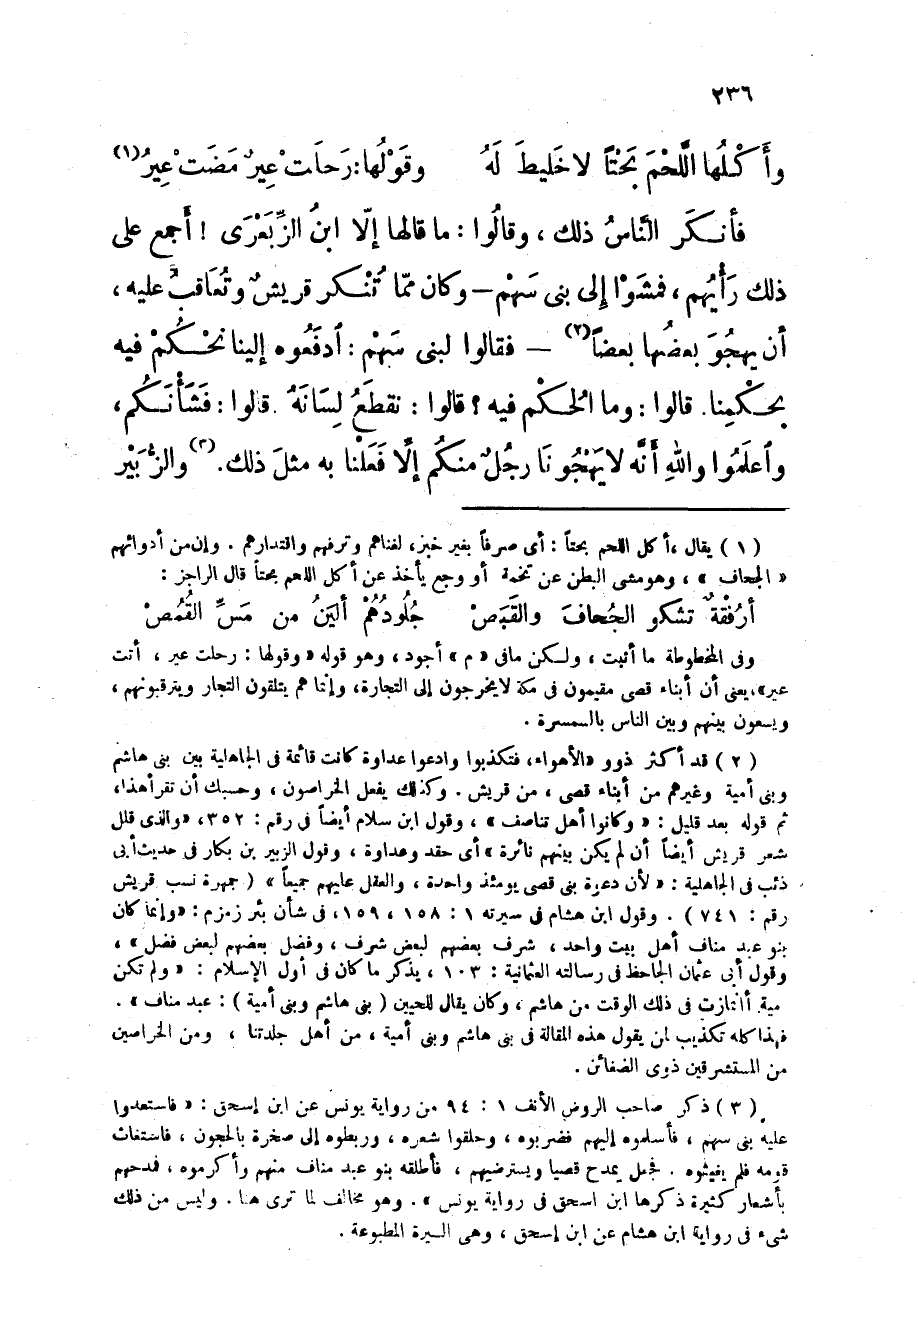 ٢٣٦
وأَكْلُها اللَّحْمَ بَحْتاً لا خَلِيطَ لَهُ وقَوْلُها: رَحَلَتْ عِيرٌ مَضَتْ عِيرُ (١)
فأنكَر النَّاسُ ذلك ، وقالُوا : ما قالها إلّا ابنُ الزِّبَعْرَى ! أجمع على
ذلك رَأْيُهم ، فمشَوْا إلى بنى سَهْم – وكان ممّا تُنْكر قريشٌ وتُعَاقبُ عليه ،
أن يهجُوَ بعضُها بعضاً (٢) – فقالوا لبنى سَهْم : ادفَعُوه إلينا نحْكُمْ فيه
بحكْمِنا. قالوا : وما الحكْم فيه ؟ قالوا : نقطَعُ لِسَانَهُ . قالوا : فَشَأْنَكُم ،
واعلَمُوا واللهِ أنَّه لا يَهْجُونَا رجُلٌ منكُم إلَّا فَعَلْنا به مثلَ ذلك. (٣) والزُّبَيْر
(١) يقال ، أكل اللحم بحتاً : أى صرفاً بغير خبز، لغناهم وترفهم واقتدارهم . وإن من أدوائهم
« الجحاف » ، وهو مشى البطن عن تخمة أو وجع يأخذ عن أكل اللحم بحتاً قال الراجز :
أرُفْقةٌ تشكو الجُحافَ والقَبَصْ جُلودُهُمْ ألينُ من مَسِّ القُمُصْ
وفى المخطوطة ما أثبت ، ولكن مافى « م » أجود ، وهو قوله « وقولها : رحلت عير ، أتت
عير»، يعنى أن أبناء قصى مقيمون فى مكة لا يخرجون إلى التجارة، وإنما هم يتلقون التجار ويترقبونهم ،
ويسعون بينهم وبين الناس بالسمسرة .
(٢) قد أكثر ذوو «الأهواء، فتكذبوا وادعوا عداوة كانت قائمة فى الجاهلية بين بنى هاشم
وبنى أمية وغيرهم من أبناء قصى ، من قريش . وكذلك يفعل الخراصون ، وحسبك أن تقرأ هذا،
ثم قوله بعد قليل : « وكانوا أهل تناصف » ، وقول ابن سلام أيضاً فى رقم : ٣٥٢، «والذى قلل
شعر قريش أيضاً أن لم يكن بينهم نائرة » أى حقد وعداوة ، وقول الزبير بن بكار فى حديث أبى
ذئب فى الجاهلية : « لأن دعوة بنى قصى يومئذ واحدة ، والعقل عليهم جميعاً » ( جمهرة نسب قريش
رقم : ٧٤١ ) . وقول ابن هشام فى سيرته ١ : ١٥٨ ، ١٥٩، فى شأن بئر زمزم : «وإنما كان
بنو عبد مناف أهل بيت واحد ، شرف بعضهم لبعض شرف ، وفضل بعضهم لبعض فضل » ،
وقول أبى عثمان الجاحظ فى رسالته العثمانية : ١٠٣ ، يذكر ما كان فى أول الإسلام : « ولم تكن
مية امتازت فى ذلك الوقت من هاشم ، وكان يقال للحيين ( بنى هاشم وبنى أمية ) : عبد مناف » .
فهذا كله تكذيب لمن يقول هذه المقالة فى بنى هاشم وبنى أمية ، من أهل جلدتنا ، ومن الخراصين
من المستشرقين ذوى الضغائن .
(٣) ذكر صاحب الروض الأنف ١ : ٩٤ من رواية يونس عن ابن إسحق : « فاستعدوا
عليه بنى سهم ، فأسلموه إليهم فضربوه ، وحلقوا شعره ، وربطوه إلى صخرة بالحجون ، فاستغاث
قومه فلم يغيثوه . فجعل يمدح قصيا ويسترضيهم ، فأطلقه بنو عبد مناف منهم وأكرموه ، فمدحهم
بأشعار كثيرة ذكرها ابن اسحق فى رواية يونس » . وهو مخالف لما ترى هنا . وليس من ذلك
شىء فى رواية ابن هشام عن ابن إسحق ، وهى السيرة المطبوعة .